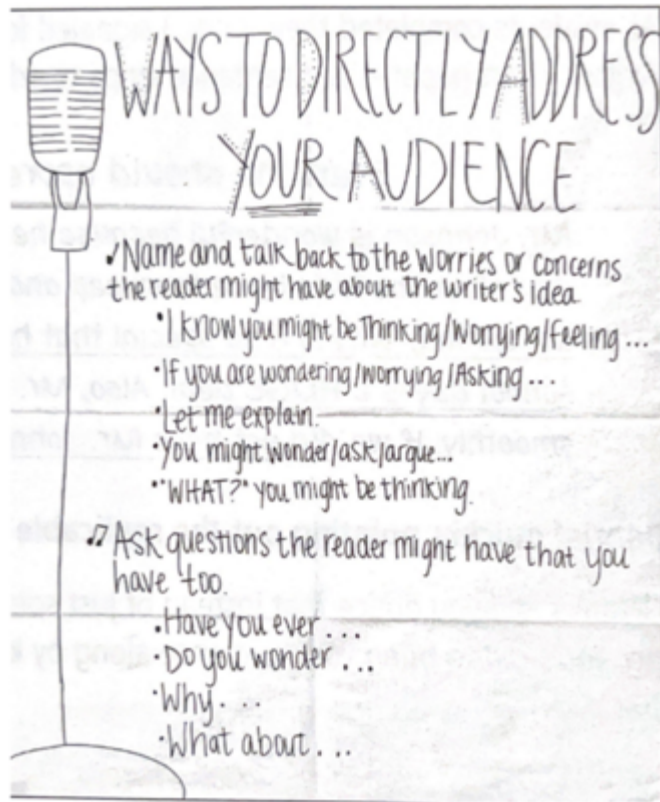 WAYS TO DIRECTLY ADDRESS
YOUR AUDIENCE
Name and talk back to the worries or concerns
the reader might have about the writer's idea.
•I know you might be Thinking/Worrying/Feeling ...
•If you are wondering/worrying/Asking ...
•Let me explain.
•You might wonder/ask/argue...
•"WHAT?" you might be thinking.
♫ Ask questions the reader might have that you
have too.
•Have you ever ...
•Do you wonder ...
•Why. ..
•What about. ..